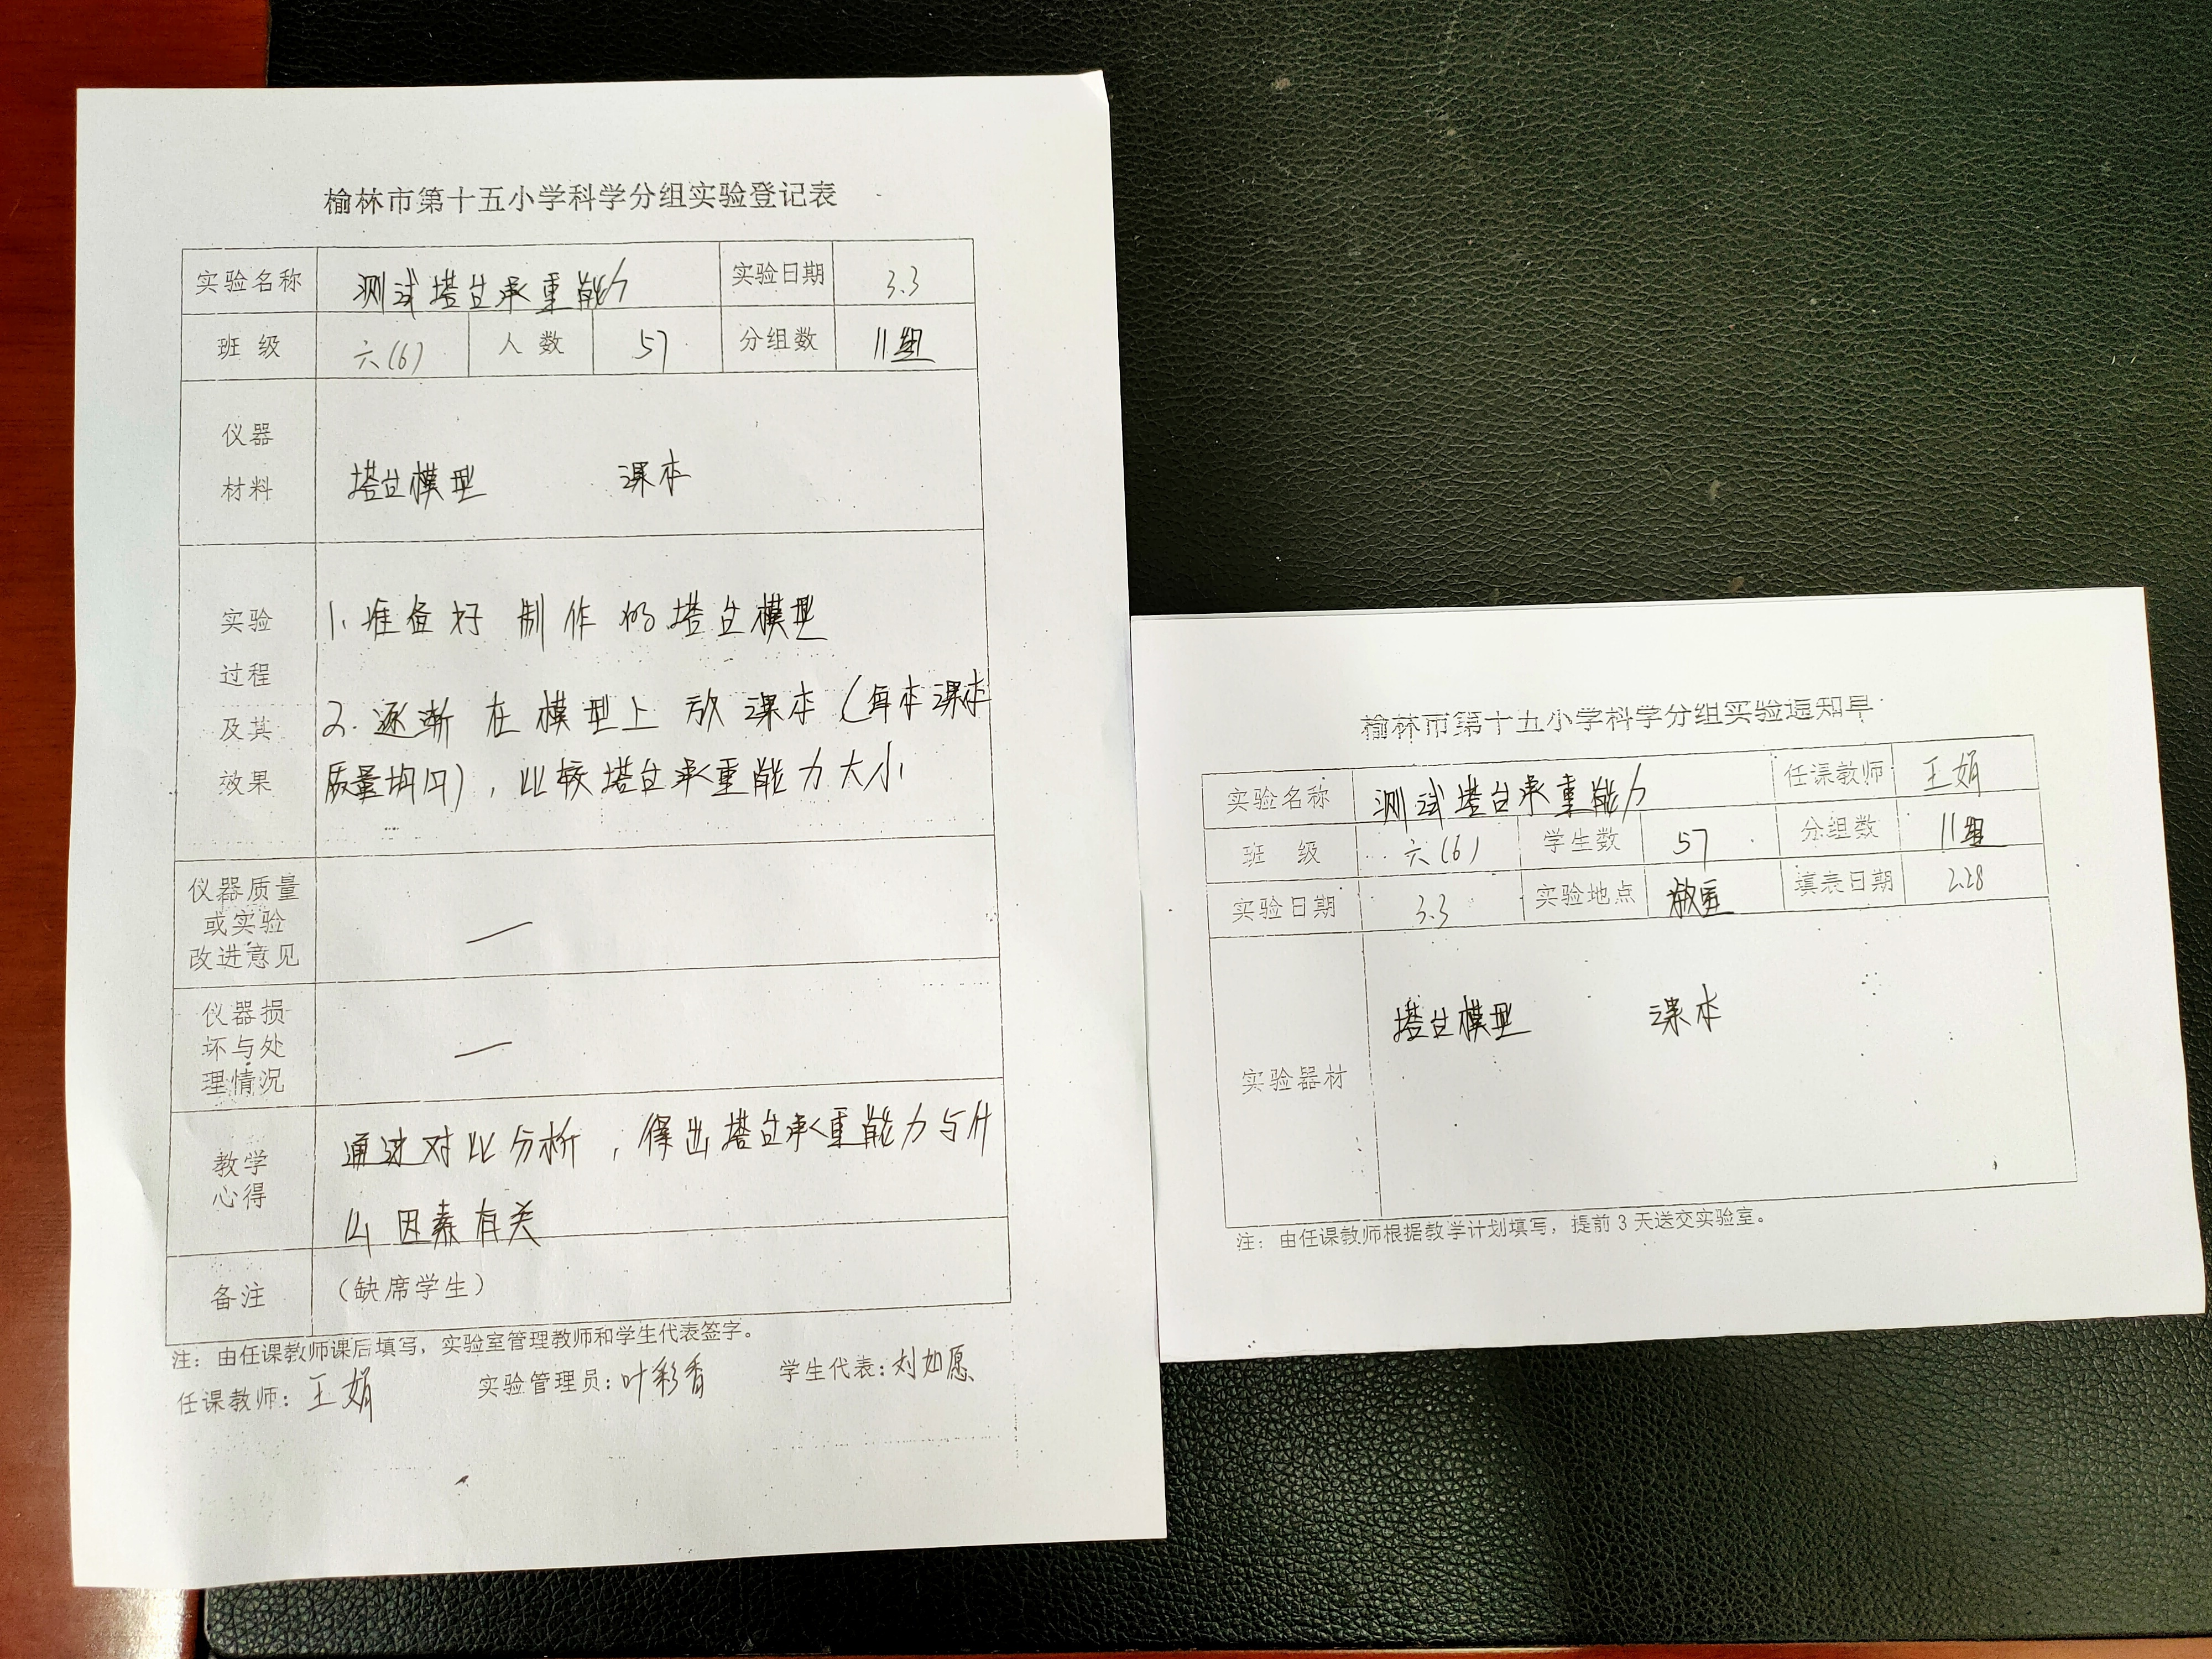 榆林市第十五小学科学分组实验登记表
实验名称 测试塔台承重能力 实验日期 3.3
班 级 六(6) 人 数 57 分组数 11组
仪器
材料
塔台模型 课本
实验
过程
及其
效果
1. 准备好制作的塔台模型
2. 逐渐在模型上放课本(每本课本
质量均同),比较塔台承重能力大小
仪器质量
或实验
改进意见
—
仪器损
坏与处
理情况
—
教学
心得
通过对比分析,得出塔台承重能力与什
么因素有关
备注 (缺席学生)
注:由任课教师课后填写,实验室管理教师和学生代表签字。
任课教师:王娟 实验管理员:叶彩香 学生代表:刘如愿
榆林市第十五小学科学分组实验通知单
实验名称 测试塔台承重能力 任课教师 王娟
班 级 六(6) 学生数 57 分组数 11组
实验日期 3.3 实验地点 教室 填表日期 2.28
实验器材
塔台模型 课本
注:由任课教师根据教学计划填写,提前3天送交实验室。